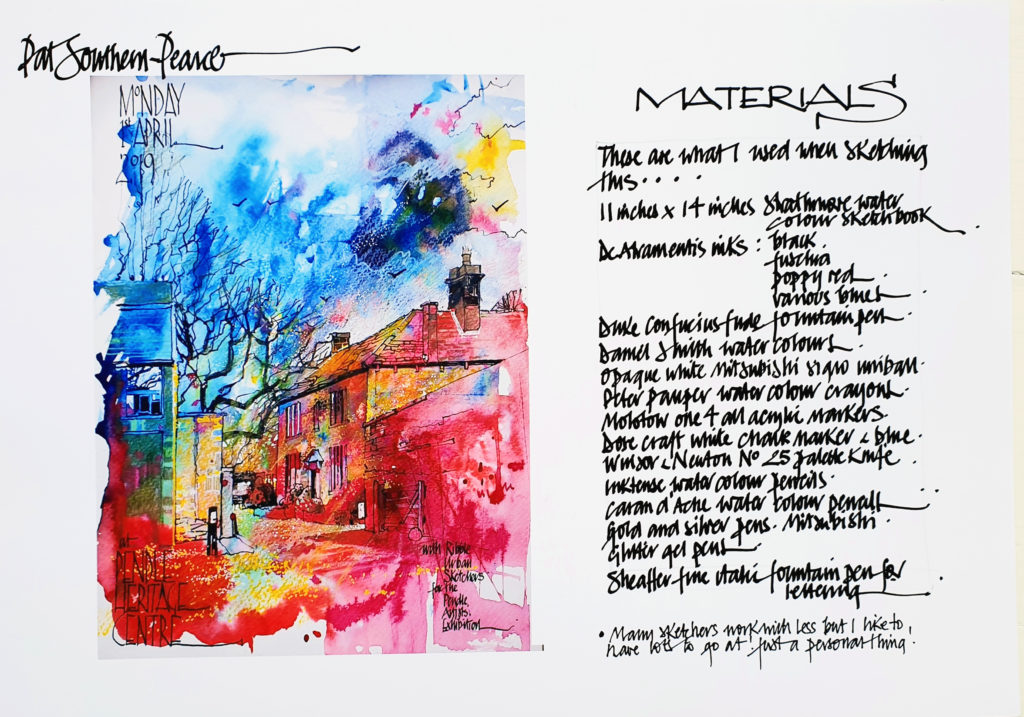 Pat Southern-Pearce
MONDAY
1st APRIL
2019
at
PENDLE
HERITAGE
CENTRE
with Ribble
Urban
Sketchers
for the
Pendle
Artists
Exhibition
MATERIALS
These are what I used when sketching
this....
11 inches x 14 inches Strathmore water
colour sketchbook.
De Atramentis inks : black.
fuschia
poppy red.
various blues.
Duke Confucius fude fountain pen.
Daniel Smith water colours.
Opaque white Mitsubishi signo uniball.
Peter Pauper water colour crayons.
Molotow one 4 all acrylic markers.
Dove craft white chalk marker & blue.
Winsor & Newton No 25 palette knife.
Inktense water colour pencils.
Caran d'Ache water colour pencils..
Gold and silver pens. Mitsubishi.
Glitter gel pens.
Sheaffer fine italic fountain pen for
lettering.
• Many sketchers work with less but I like to
have lots to go at. Just a personal thing.